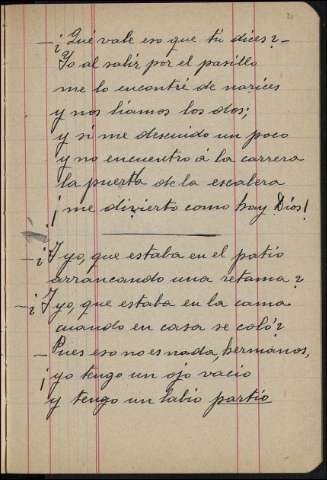 —¡Qué vale eso que tú dices?—
Yo al salir por el pasillo
me lo encontré de narices
y nos liamos los dos;
y si me descuido un poco
y no encuentro á la carrera
la puerta de la escalera
¡me divierto como hay Dios!
—¿Y yo, que estaba en el patio
arrancando una retama?
—¿Y yo, que estaba en la cama
cuando en casa se coló?
— Pues eso no es nada, hermanos,
¡yo tengo un ojo vacio
y tengo un labio partio